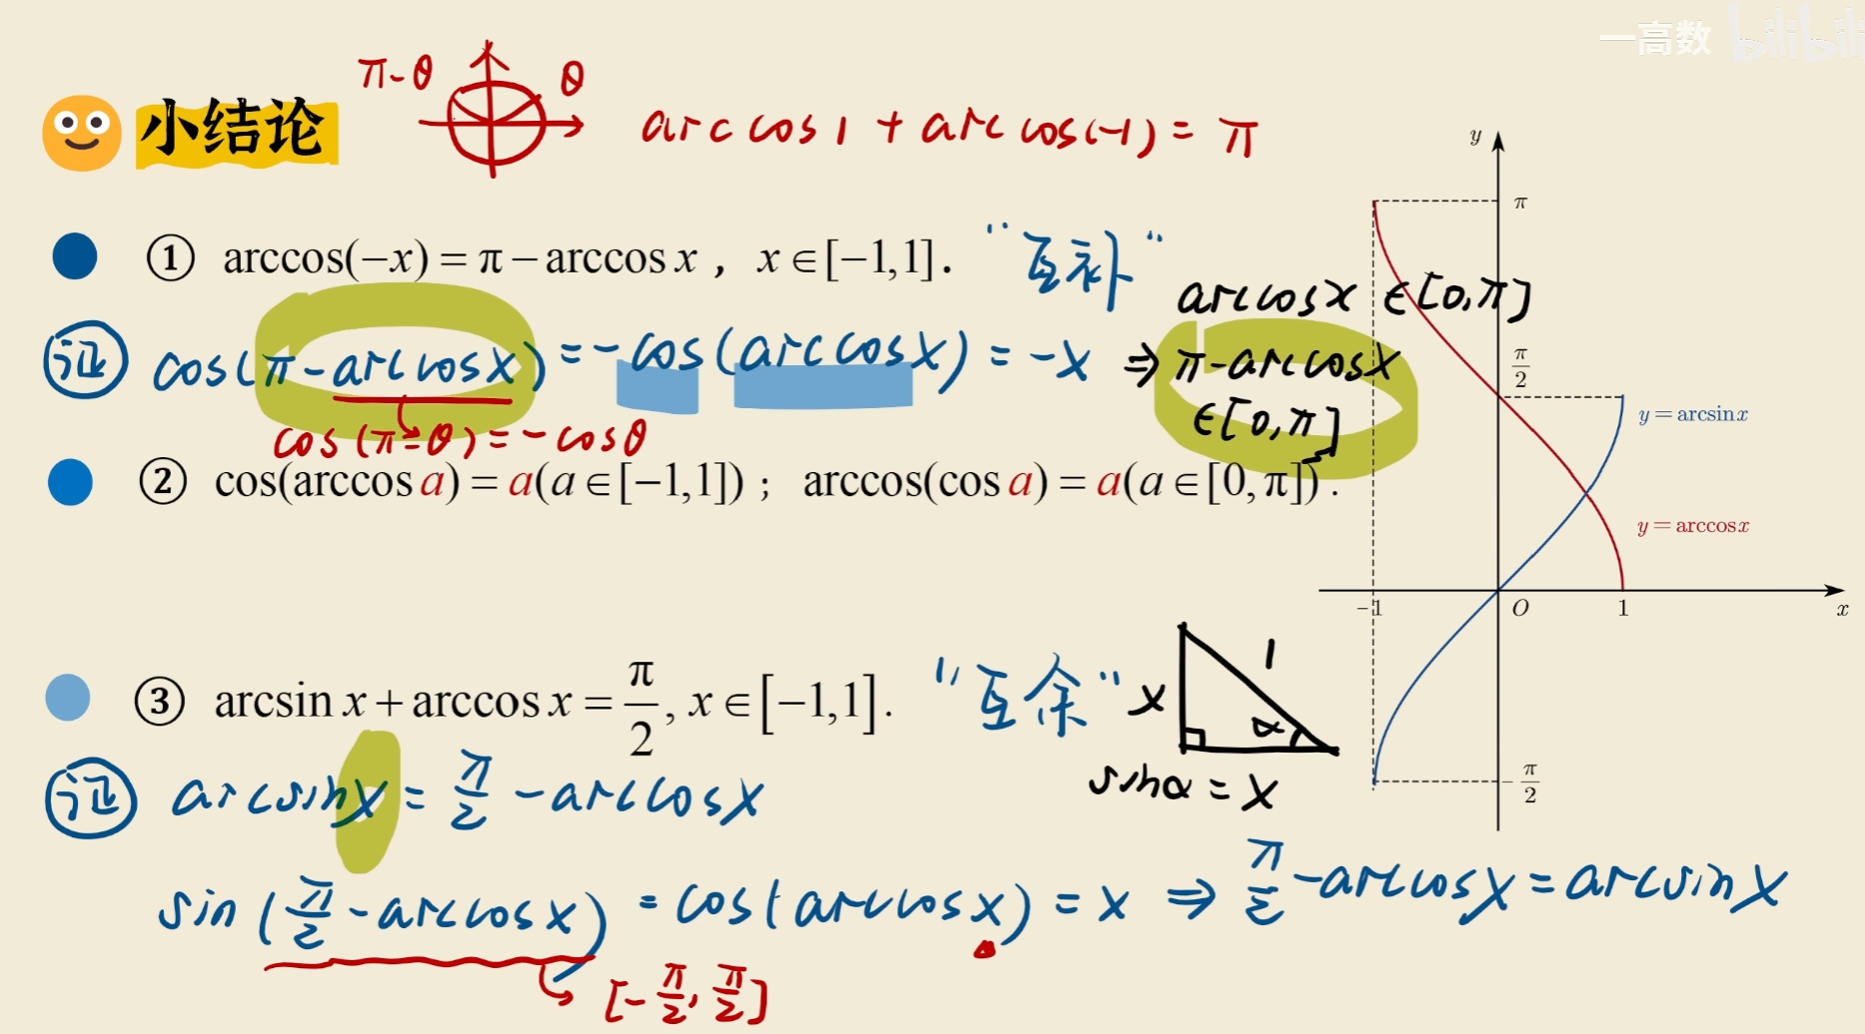 一高数 bilibili
π-θ θ
小结论 arccos1 + arccos(-1) = π
① arccos(−x) = π − arccos x , x ∈ [−1,1]. “互补”
arccosx ∈ [0,π]
证 cos(π-arccosx) = -cos(arccosx) = -x ⇒ π-arccosx
∈[0,π]
cos(π-θ) = -cosθ
② cos(arccos a) = a(a ∈ [−1,1]) ; arccos(cos a) = a(a ∈ [0, π]) .
③ arcsin x + arccos x = π/2 , x ∈ [−1,1]. “互余”
x 1 α
sinα = x
证 arcsinx = π/2 - arccosx
sin(π/2 - arccosx) = cos(arccosx) = x ⇒ π/2 - arccosx = arcsinx
[-π/2, π/2]
y
π
π/2
y = arcsin x
y = arccos x
−1 O 1 x
−π/2